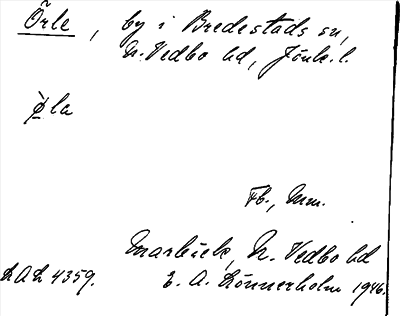 Örle, by i Bredestads sn,
N. Vedbo hd, Jönk. l.
ø̀la
Fb., Mm.
Marbäck, N. Vedbo hd
LAL 4359. E. A. Lönnerholm 1946.